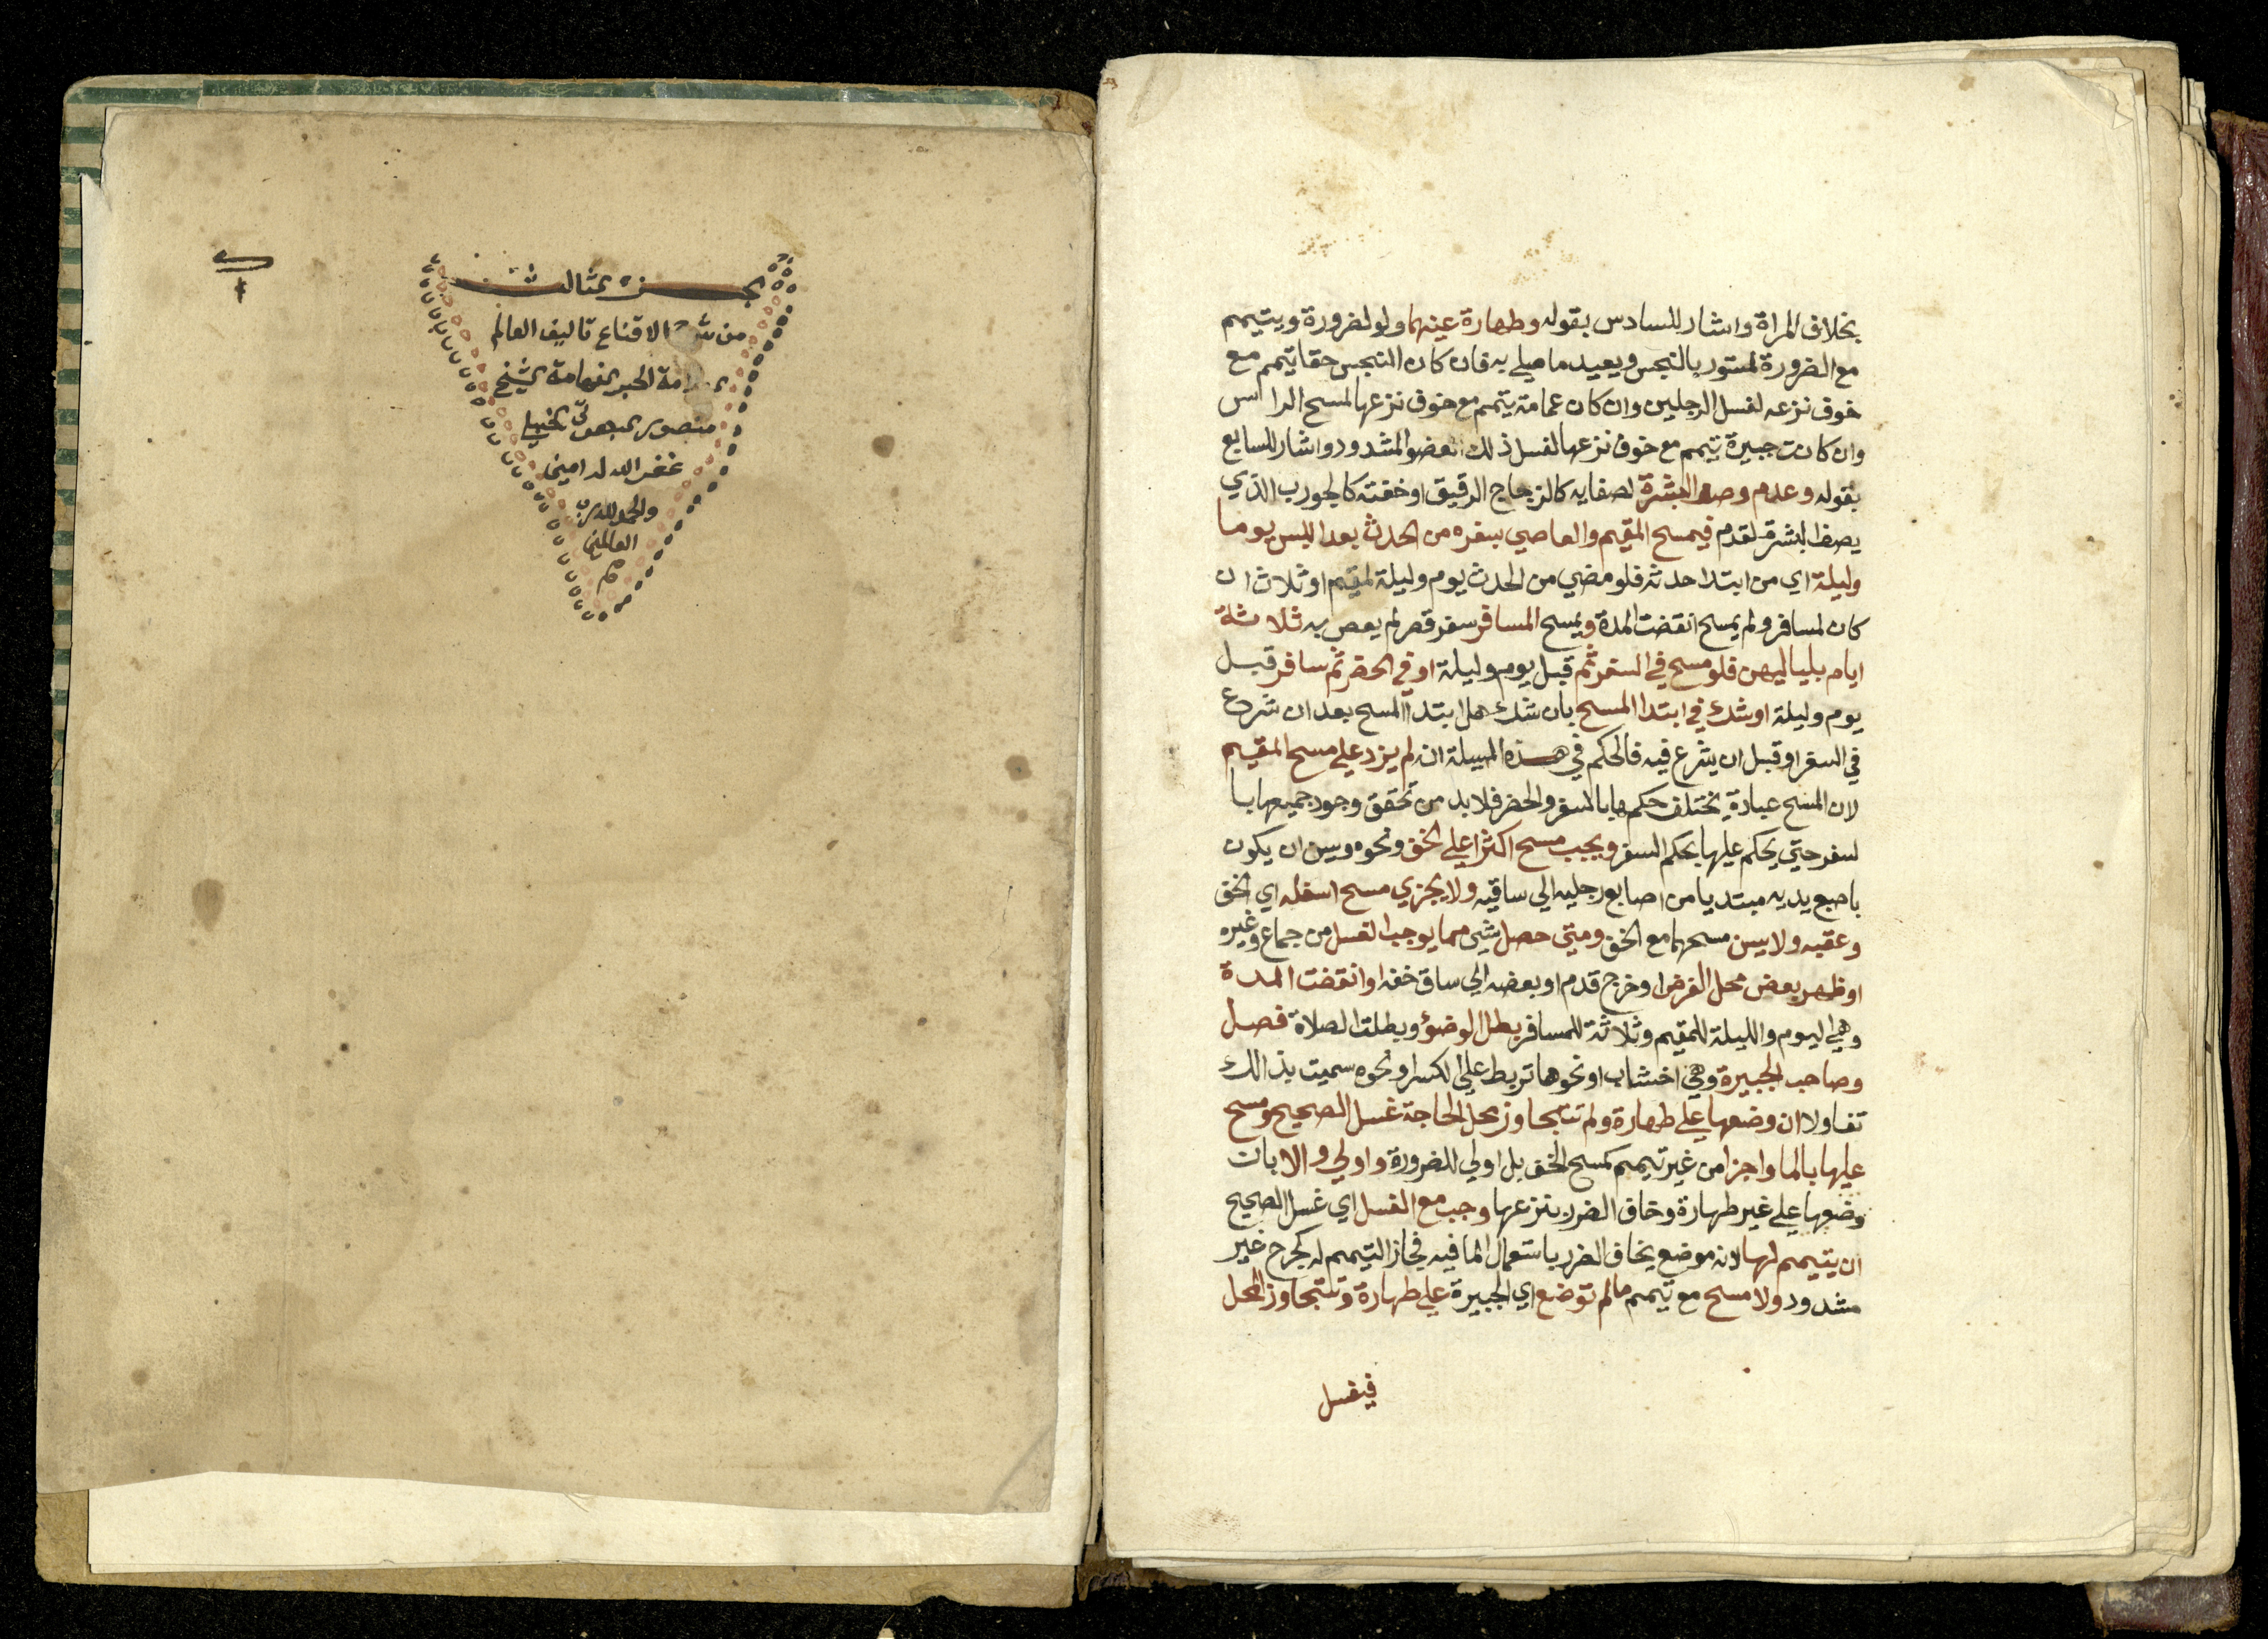 بخلاف المراة واشار للسادس بقوله وطهارة عينهما ولو لضرورة ويتيمم
مع الضرورة لمستور بالنجس ويعيد ما صلي به فان كان النجس خفا يتيمم مع
خوف نزعه لغسل الرجلين وان كان عمامة يتيمم مع خوف نزعها لمسح الراس
وان كانت جبيرة يتيمم مع خوف نزعها لغسل ذلك العضو المشدود واشار للسابع
بقوله وعدم وصف البشرة لصفايه كالزجاج الرقيق او خفته كالجورب الذي
يصف البشرة لقدم فيمسح المقيم والعاصي بسفره من الحدث بعد اللبس يوما
وليلة اي من ابتدا حدثه فلو مضي من الحدث يوم وليلة لمقيم او ثلاث ان
كان لمسافر ولم يمسح انقضت المدة ويمسح المسافر سفر قصر لم يعص به ثلاثة
ايام بلياليهن فلو مسح في السفر ثم قبل يوم وليلة او في الحضر ثم سافر قبل
يوم وليلة او شك في ابتدا المسح بان شك هل ابتدا المسح بعد ان شرع
في السفر او قبل ان يشرع فيه فالحكم في هذه المسيلة انه لم يزد علي مسح المقيم
لان المسح عبادة يختلف حكمها بالسفر والحضر فلا بد من تحقق وجود جميعها با
لسفر حتي يحكم عليها بحكم السفر ويجب مسح اكثر اعلي الخف ونحوه وسن ان يكون
باصبع يديه مبتديا من اصابع رجليه الي ساقيه ولا يجزي مسح اسفله اي الخف
وعقبه ولا يسن مسحهما مع الخف ومتي حصل شي مما يوجب الغسل من جماع وغيره
او ظهر بعض محل الفرض او خرج قدم او بعضه الي ساق خفه او انقضت المدة
وهي اليوم والليلة للمقيم وثلاثة للمسافر بطل الوضؤ وبطلت الصلاة فصل
وصاحب الجبيرة وهي اخشاب او نحوها تربط علي الكسر او نحوه سميت بذالك
تفاولا ان وضعها علي طهارة ولم تتجاوز محل الحاجة غسل الصحيح ومسح
عليها بالما واجزا من غير تيمم كمسح الخف بل اولي للضرورة واولي والا بان
وضعها علي غير طهارة وخاف الضرر بنزعها وجب مع الغسل اي غسل الصحيح
ان يتيمم لها لانه موضع يخاف الضرر باستعمال الما فيه فجاز التيمم له كجرح غير
مشدود ولا مسح مع تيمم مالم توضع اي الجبيرة علي طهارة وتتجاوز المحل
فيغسل
الجزء الثالث
من شرح الاقناع تاليف العالم
العلامة الحبر الفهامة الشيخ
منصور البهوتي الحنبلي
غفر الله له امين
والحمد لله رب
العالمين
م